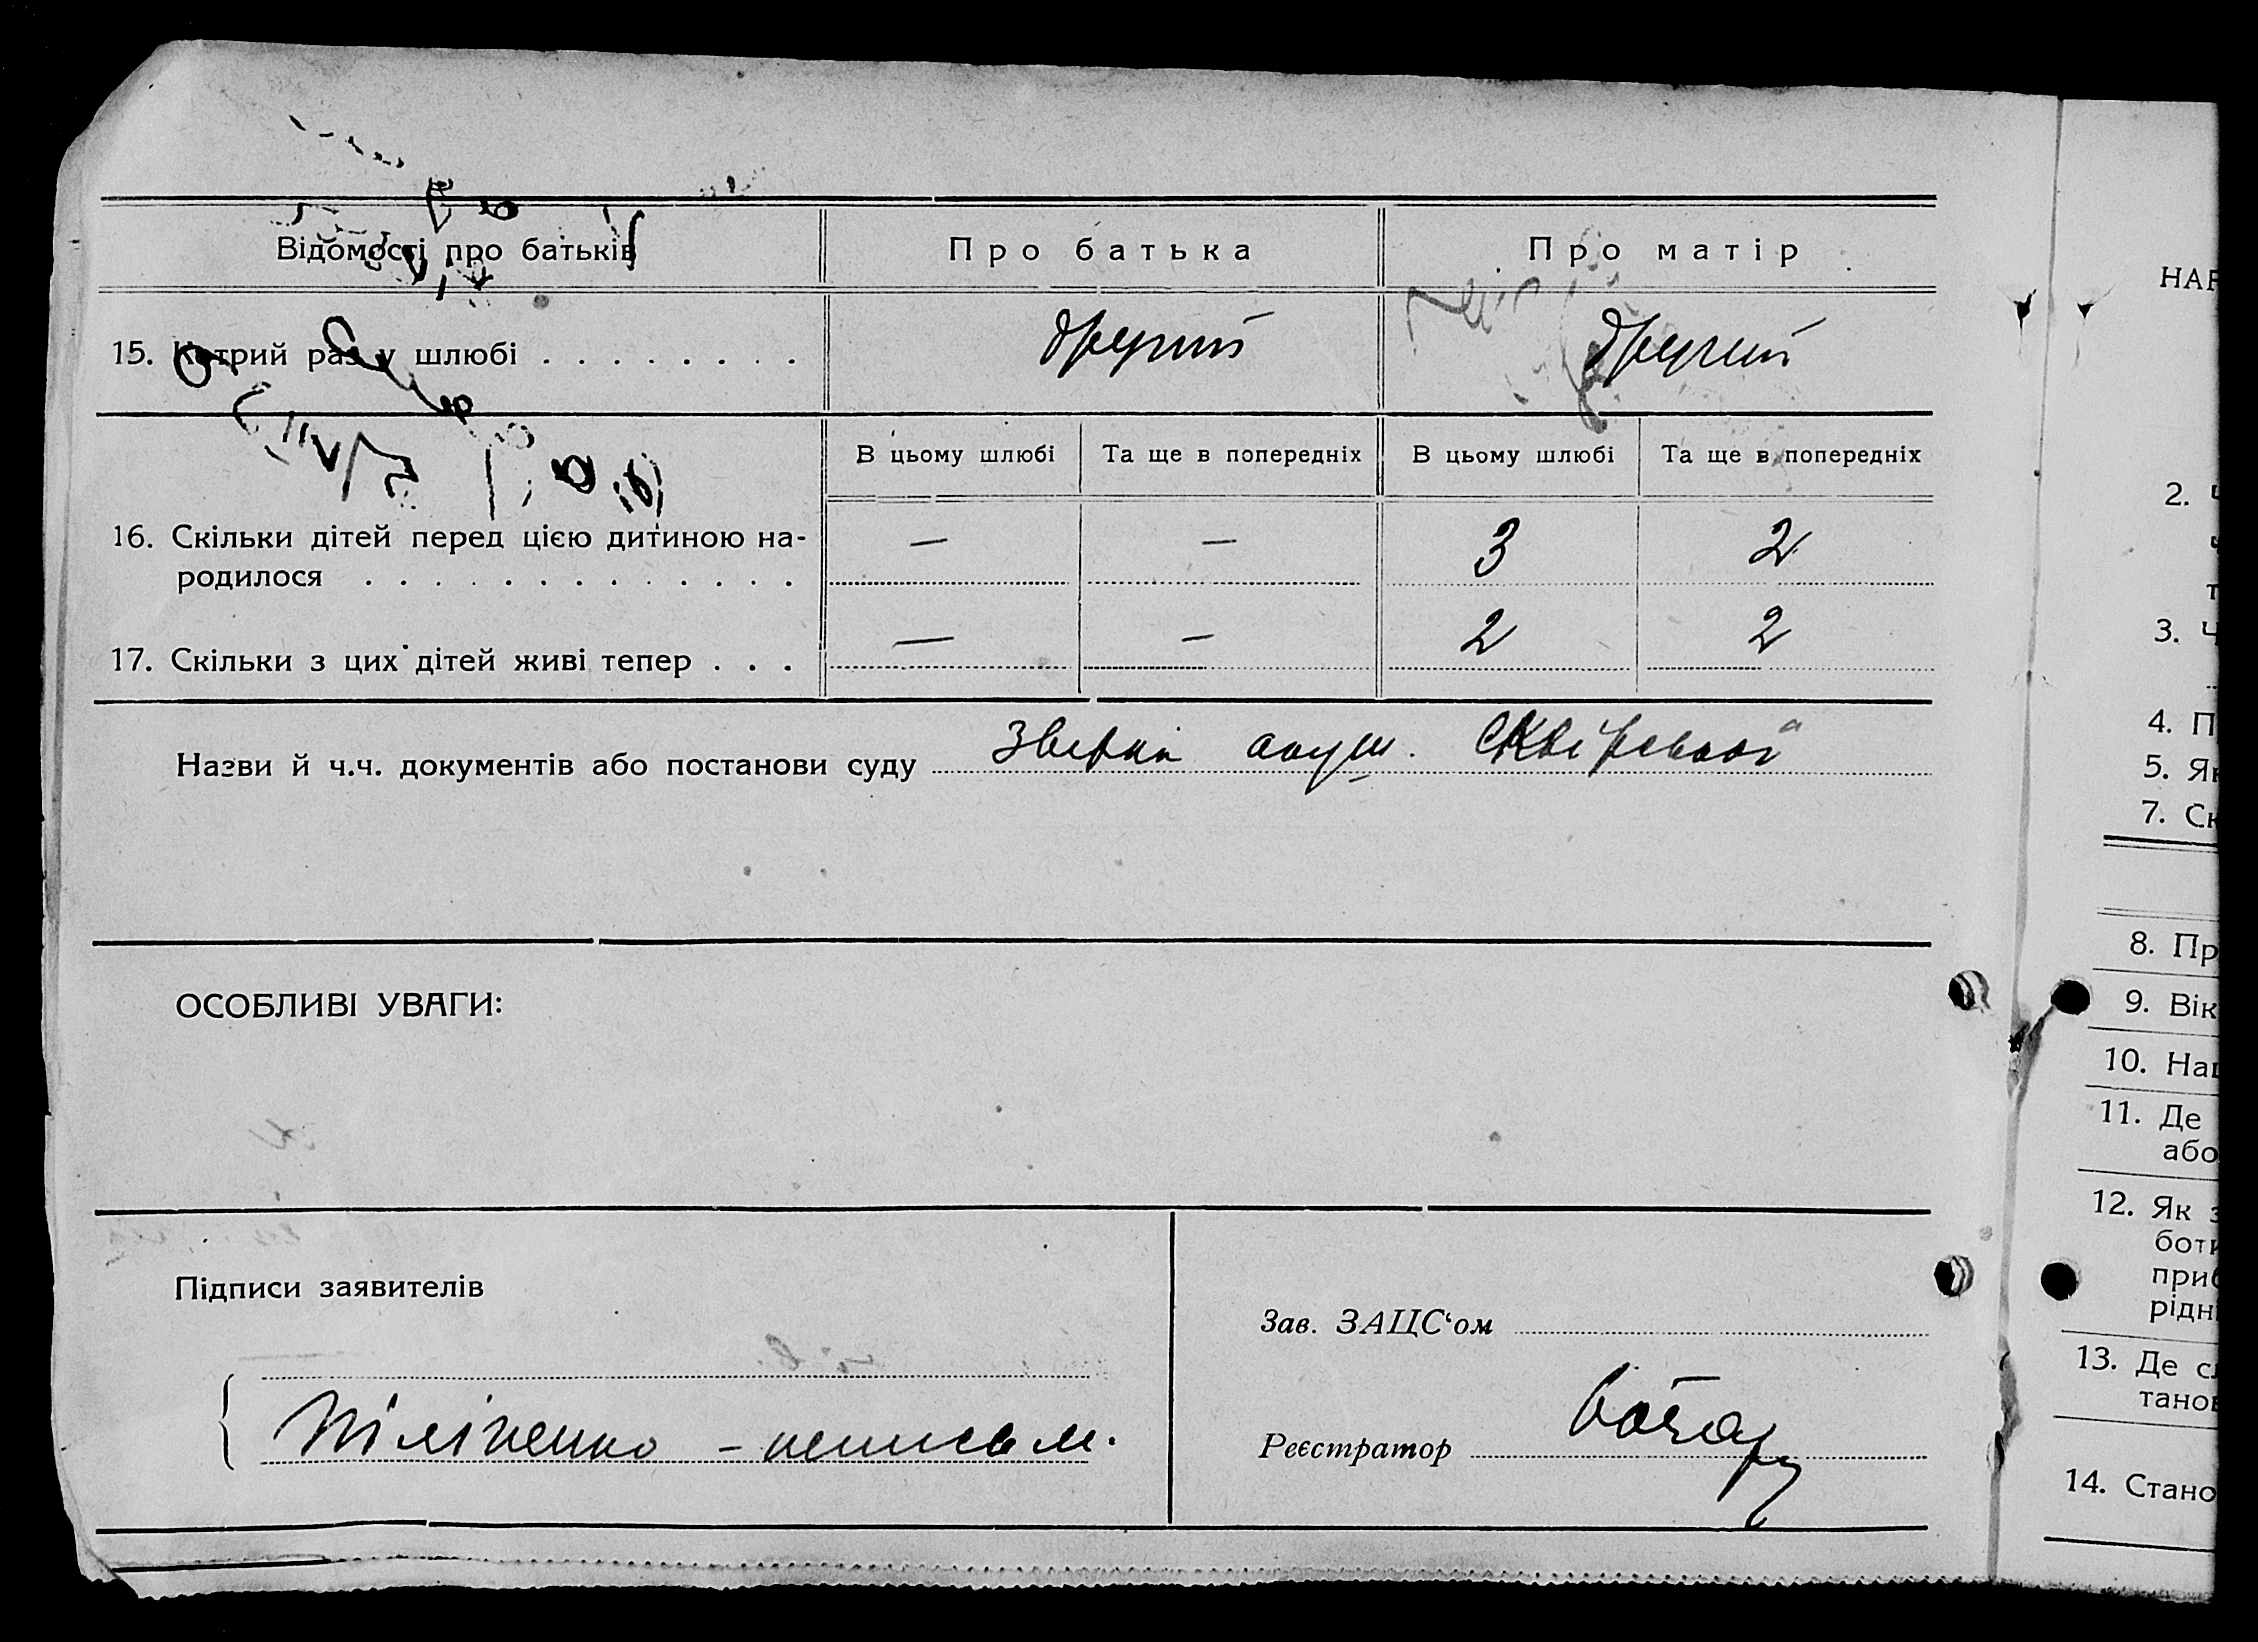 Відомості про батьків
Про батька
Про матір
15. Котрий раз у шлюбі . . . . . . . .
другий
другий
В цьому шлюбі
Та ще в попередніх
В цьому шлюбі
Та ще в попередніх
16. Скільки дітей перед цією дитиною на-
родилося . . . . . . . . . . . . .
—
—
3
2
17. Скільки з цих дітей живі тепер . . .
—
—
2
2
Назви й ч.ч. документів або постанови суду
акуш.
ОСОБЛИВІ УВАГИ:
Підписи заявителів
Піліпенко – неписьм.
Зав. ЗАЦС‘ом
Реєстратор
НАР
2. Ч
3. Ч
4. П
5. Як
7. Ск
8. Пр
9. Вік
10. Нац
11. Де
або
12. Як з
боти
приб
рідн
13. Де сл
танов
14. Стано